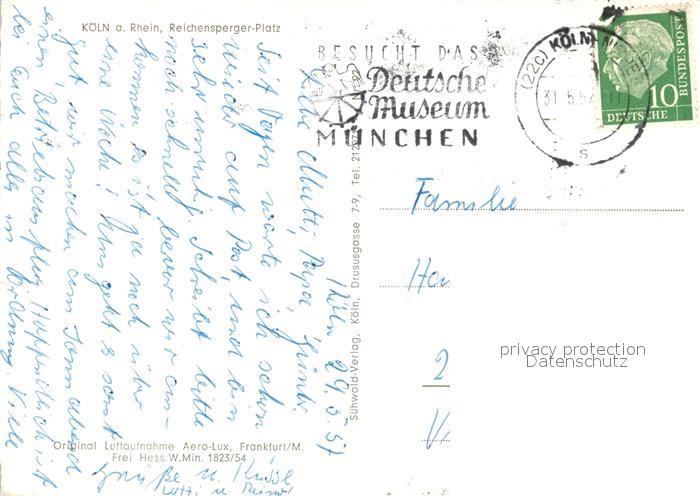 KÖLN a. Rhein, Reichensperger-Platz
BESUCHT DAS
Deutsche
Museum
MÜNCHEN
(22c) KÖLN
31.5.57
s
10
DEUTSCHE
BUNDESPOST
Familie
Ha
2
V
privacy protection
Datenschutz
Sühwold-Verlag, Köln, Drususgasse 7-9, Tel. 21207
Köln 29.5.57
Liebe Mutti, Papa, Günter
Seit Tagen warte ich schon
wieder auf Post, und bin
sehr unruhig. Schreibt bitte
noch schnell bevor wir
kommen. Es ist ja noch über
eine Woche! Uns geht es sonst
gut, wir machen am Sonnabend
einen Betriebsausflug. Hoffentlich ist
bei Euch alles in Ordnung. Viele
Grüße u. Küsse
Original Luftaufnahme Aero-Lux, Frankfurt/M.
Frei Hess.W.Min. 1823/54